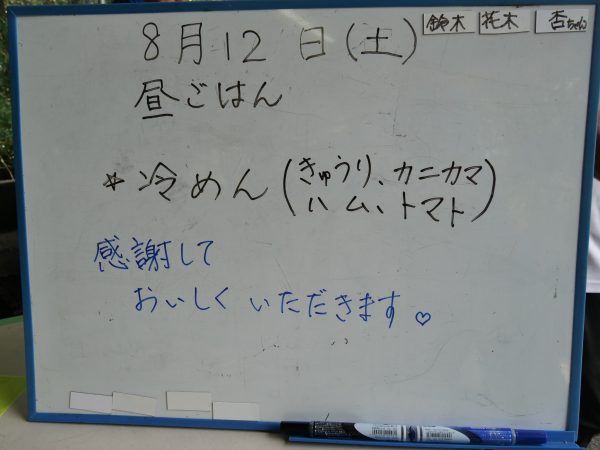 鈴木 托木 杏ちゃん
8月12日(土)
昼ごはん
*冷めん(きゅうり、カニカマ
ハム、トマト)
感謝して
おいしくいただきます。♡